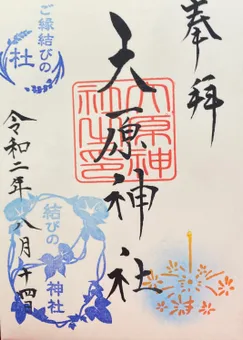 奉拝
天原神社
天原神社之印
ご縁結びの
杜
令和二年八月十四日
結びの
神社